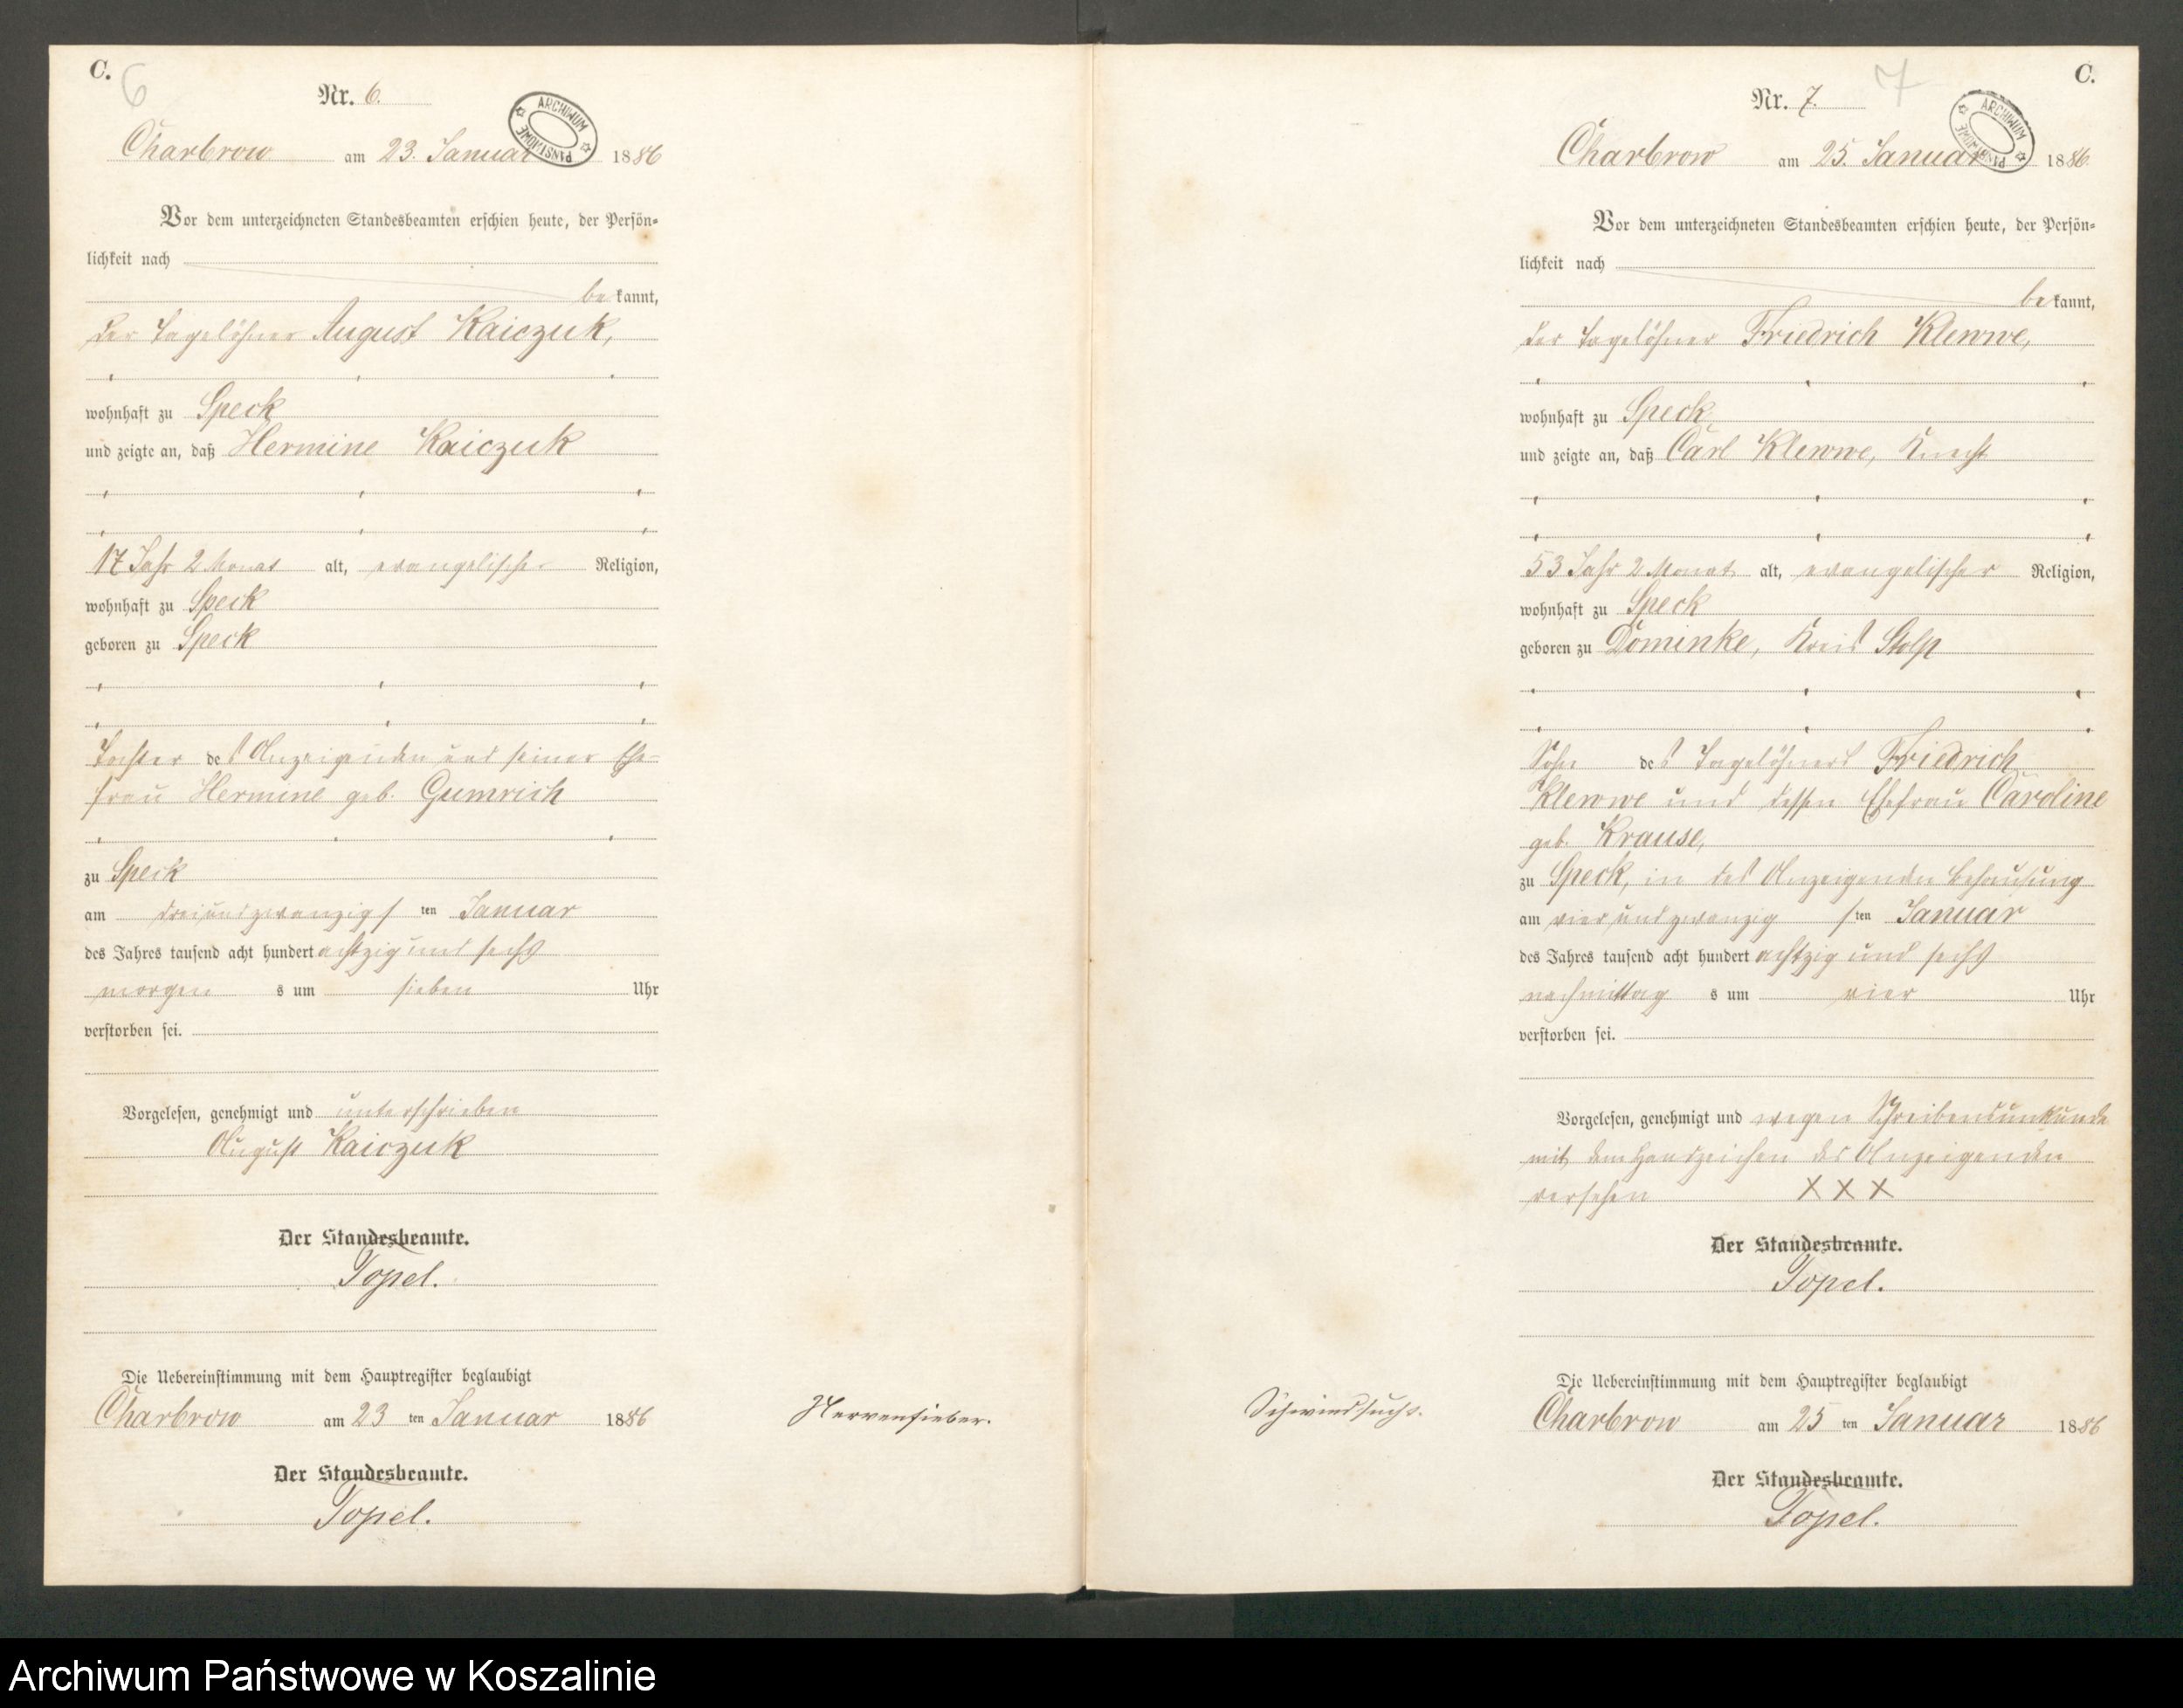 C.
6
Nr. 6.
ARCHIWUM PAŃSTWOWE
Charbrow am 23. Januar 1886
Vor dem unterzeichneten Standesbeamten erschien heute, der Persön-
lichkeit nach
bekannt,
der Tagelöhner August Kaiczuk,
wohnhaft zu Speck
und zeigte an, daß Hermine Kaiczuk
17 Jahr 2 Monat alt, evangelischer Religion,
wohnhaft zu Speck
geboren zu Speck
Tochter des Anzeigenden und seiner Ehe-
frau Hermine geb. Gumrich
zu Speck
am dreiundzwanzigsten Januar
des Jahres tausend acht hundert achtzig und sechs
morgens um sieben Uhr
verstorben sei.
Vorgelesen, genehmigt und unterschrieben
August Kaiczuk
Der Standesbeamte.
Topel.
Die Uebereinstimmung mit dem Hauptregister beglaubigt
Charbrow am 23 ten Januar 1886
Der Standesbeamte.
Topel.
Nervenfieber.
C.
7
Nr. 7.
ARCHIWUM PAŃSTWOWE
Charbrow am 25. Januar 1886.
Vor dem unterzeichneten Standesbeamten erschien heute, der Persön-
lichkeit nach
bekannt,
der Tagelöhner Friedrich Klewwe,
wohnhaft zu Speck
und zeigte an, daß Carl Klewwe, Knecht
53 Jahr 2 Monat alt, evangelischer Religion,
wohnhaft zu Speck
geboren zu Dominke, Kreis Stolp
Sohn des Tagelöhners Friedrich
Klewwe und dessen Ehefrau Caroline
geb. Krause,
zu Speck, in des Anzeigenden Behausung
am vier und zwanzigsten Januar
des Jahres tausend acht hundert achtzig und sechs
nachmittags um vier Uhr
verstorben sei.
Vorgelesen, genehmigt und wegen Schreibensunkunde
mit dem Handzeichen des Anzeigenden
versehen XXX
Der Standesbeamte.
Topel.
Schwindsucht.
Die Uebereinstimmung mit dem Hauptregister beglaubigt
Charbrow am 25 ten Januar 1886
Der Standesbeamte.
Topel.
Archiwum Państwowe w Koszalinie